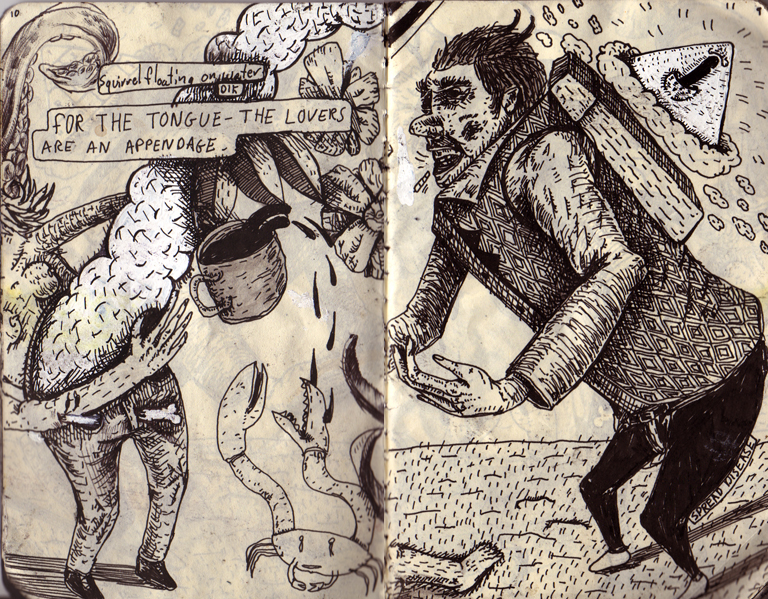 10
Squirrel floating on water
OIK
FOR THE TONGUE - THE LOVERS
ARE AN APPENDAGE
SPREAD DISEASE